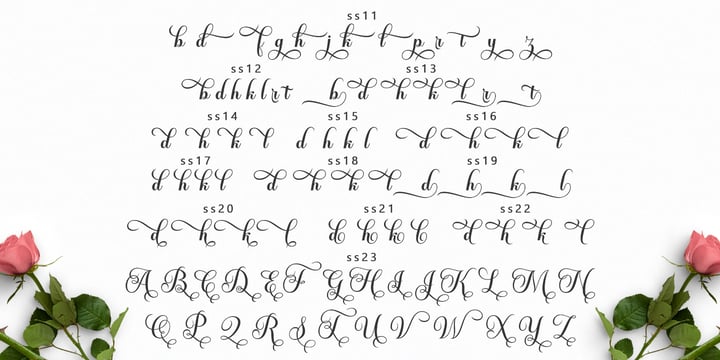 ss11
b d f g h j k l p r t y z
ss12 ss13
b d h k l r t b d h k l r t
ss14 ss15 ss16
d h k l d h k l d h k l
ss17 ss18 ss19
d h k l d h k l d h k l
ss20 ss21 ss22
d h k l d h k l d h k l
ss23
A B C D E F G H I J K L M N
O P Q R S T U V W X Y Z